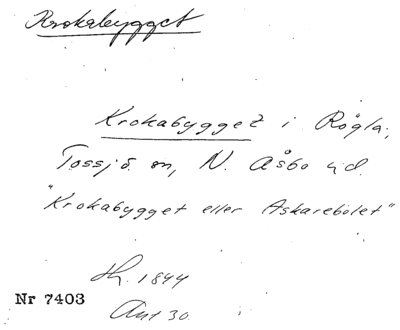 Krokabygget
Krokabygget i Rögla,
Tossjö sn, N. Åsbo hd.
"Krokabygget eller Askarebolet"
1844
Nr 7403
Ant 30.